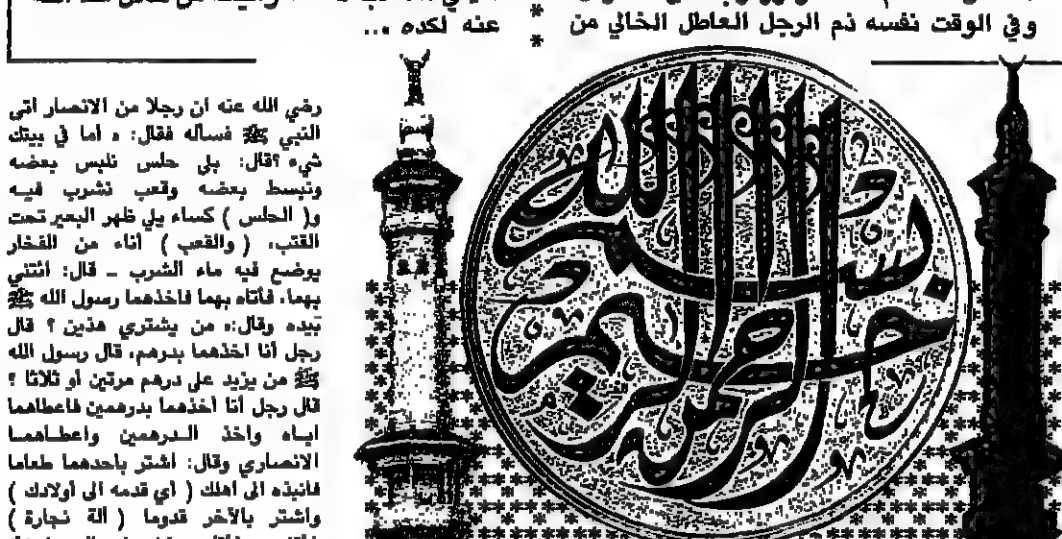 وفي الوقت نفسه ذم الرجل العاطل الخالي من
عنه لكده ...
بسم الله الرحمن الرحيم
رضي الله عنه ان رجلا من الانصار اتى
النبي ﷺ فسأله فقال: ه أما في بيتك
شيء ؟ قال: بلى حلس نلبس بعضه
ونبسط بعضه وقعب نشرب فيه
و( الحلس ) كساء يلي ظهر البعير تحت
القتب، ( والقعب ) أناء من الفخار
يوضع فيه ماء الشرب ــ قال: ائتني
بهما، فأتاه بهما فاخذهما رسول الله ﷺ
بيده وقال:ه من يشتري هذين ؟ قال
رجل أنا اخذهما بدرهم، قال رسول الله
ﷺ من يزيد على درهم مرتين أو ثلاثا ؟
قال رجل أنا أخذهما بدرهمين فاعطاهما
اياه واخذ الدرهمين واعطاهما
الانصاري وقال: اشتر باحدهما طعاما
فانبذه الى اهلك ( أي قدمه الى أولادك )
واشتر بالآخر قدوما ( ألة نجارة )